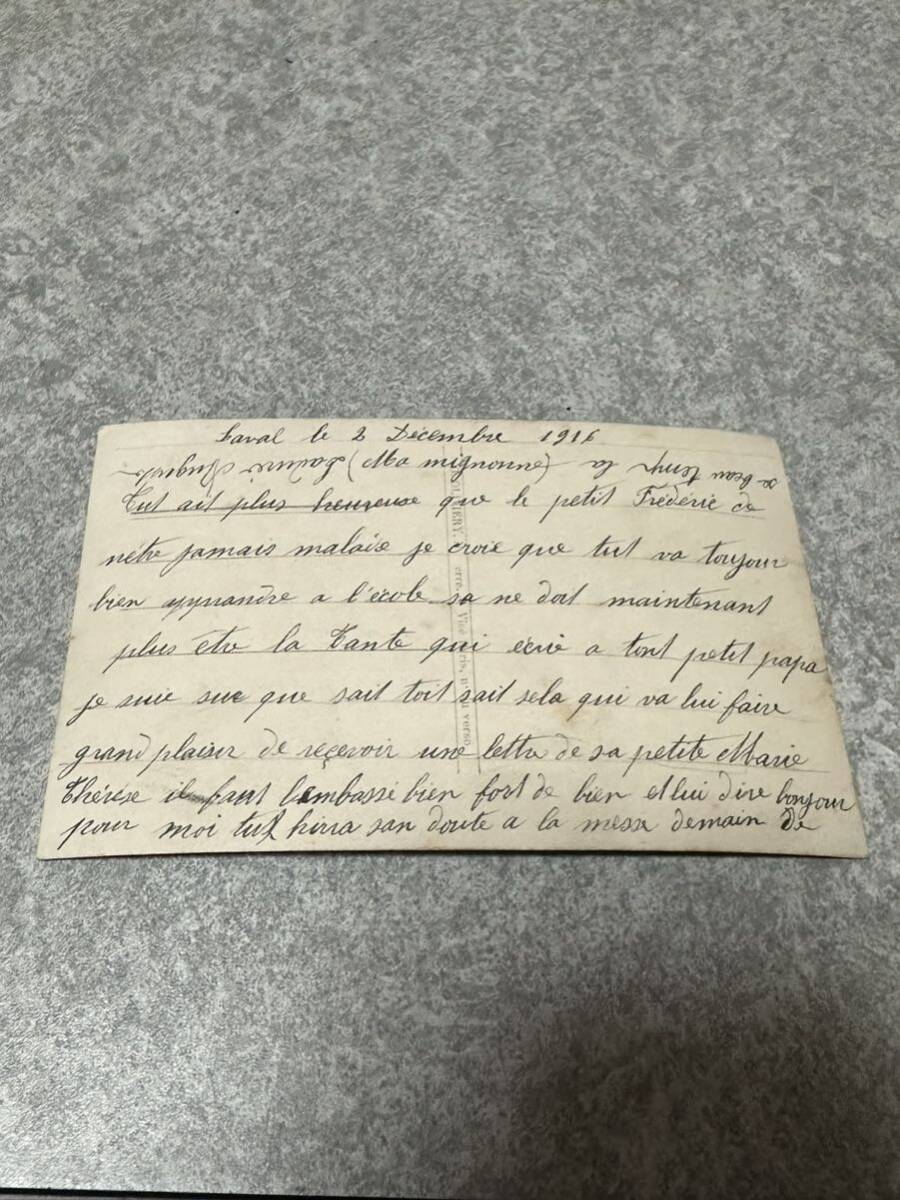 Laval le 2 Décembre 1916
(Ma mignonne)
Tut ait plus heureuse que le petit Frédéric de
nête jamais malade je croie que tut va toujour
bien apprandre a l'école sa ne doit maintenant
plus être la Tante qui écrie a tont petit papa
je suie sur que sait toit sait sela qui va lui faire
grand plaisir de reçevoir une lettre de sa petite Marie
Thérèse il faut lembassé bien fort de bien et lui dire bonjour
pour moi tut hira san doute a la messe demain de
se beau temp la